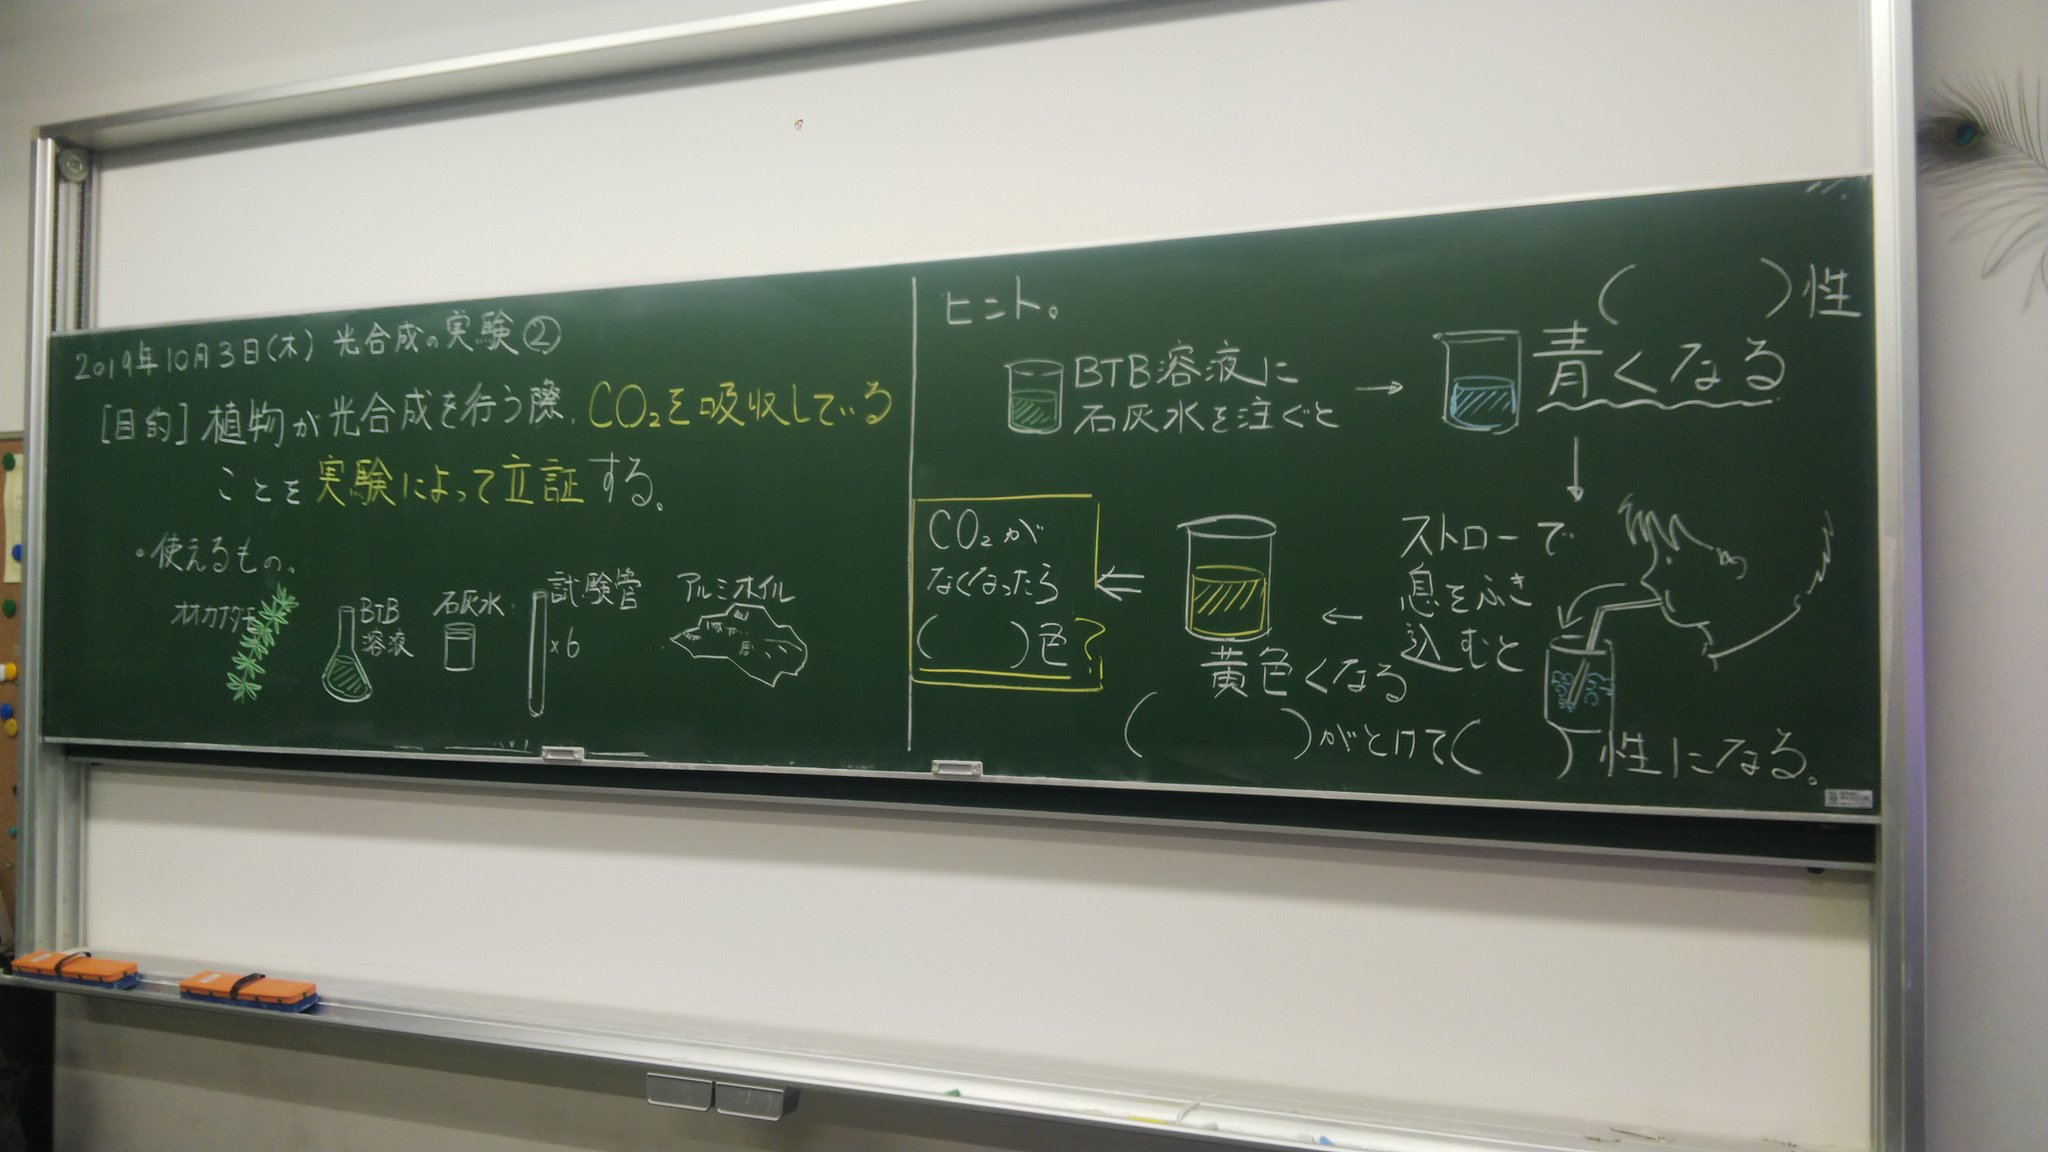 2019年10月3日(木) 光合成の実験②
[目的] 植物が光合成を行う際、CO₂を吸収している
ことを実験によって立証する。
・使えるもの、
オオカナダモ
BTB
溶液
石灰水
試験管
×6
アルミホイル
ヒント。
BTB溶液に
石灰水を注ぐと
→
( )性
青くなる
ストローで
息をふき
込むと
黄色くなる
( )がとけて( )性になる。
CO₂が
なくなったら
( )色?